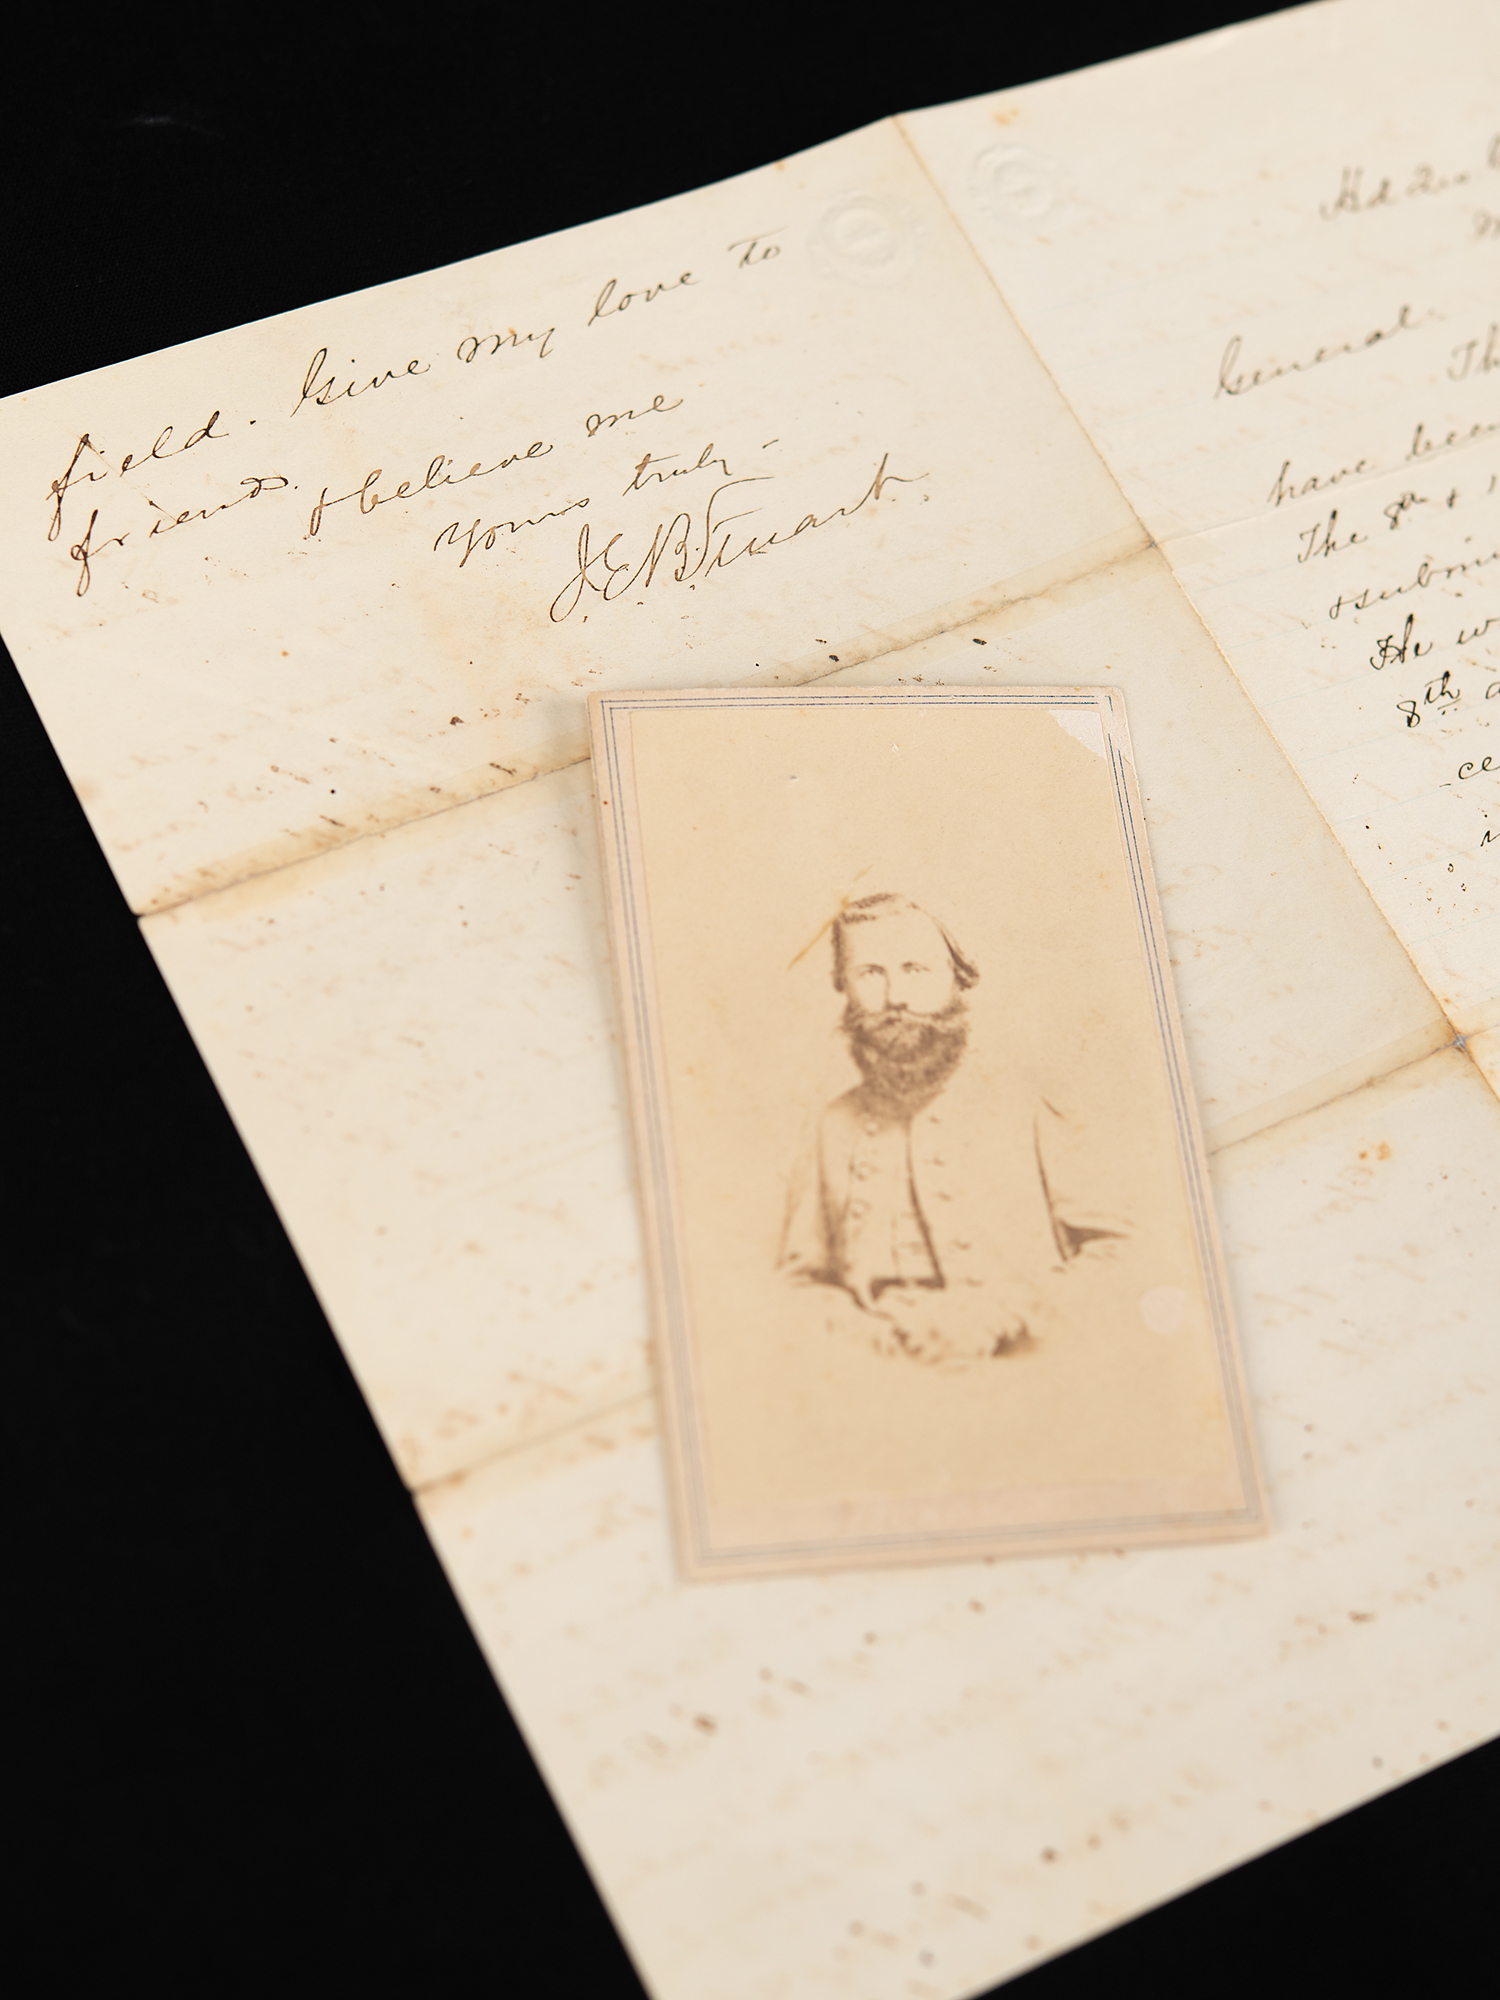 field. Give my love to
friends. & believe me
yours truly -
JEB Stuart.
Hd Qu
General.
Th
have been
The 8th & 1
& submi
He w
8th a
ce